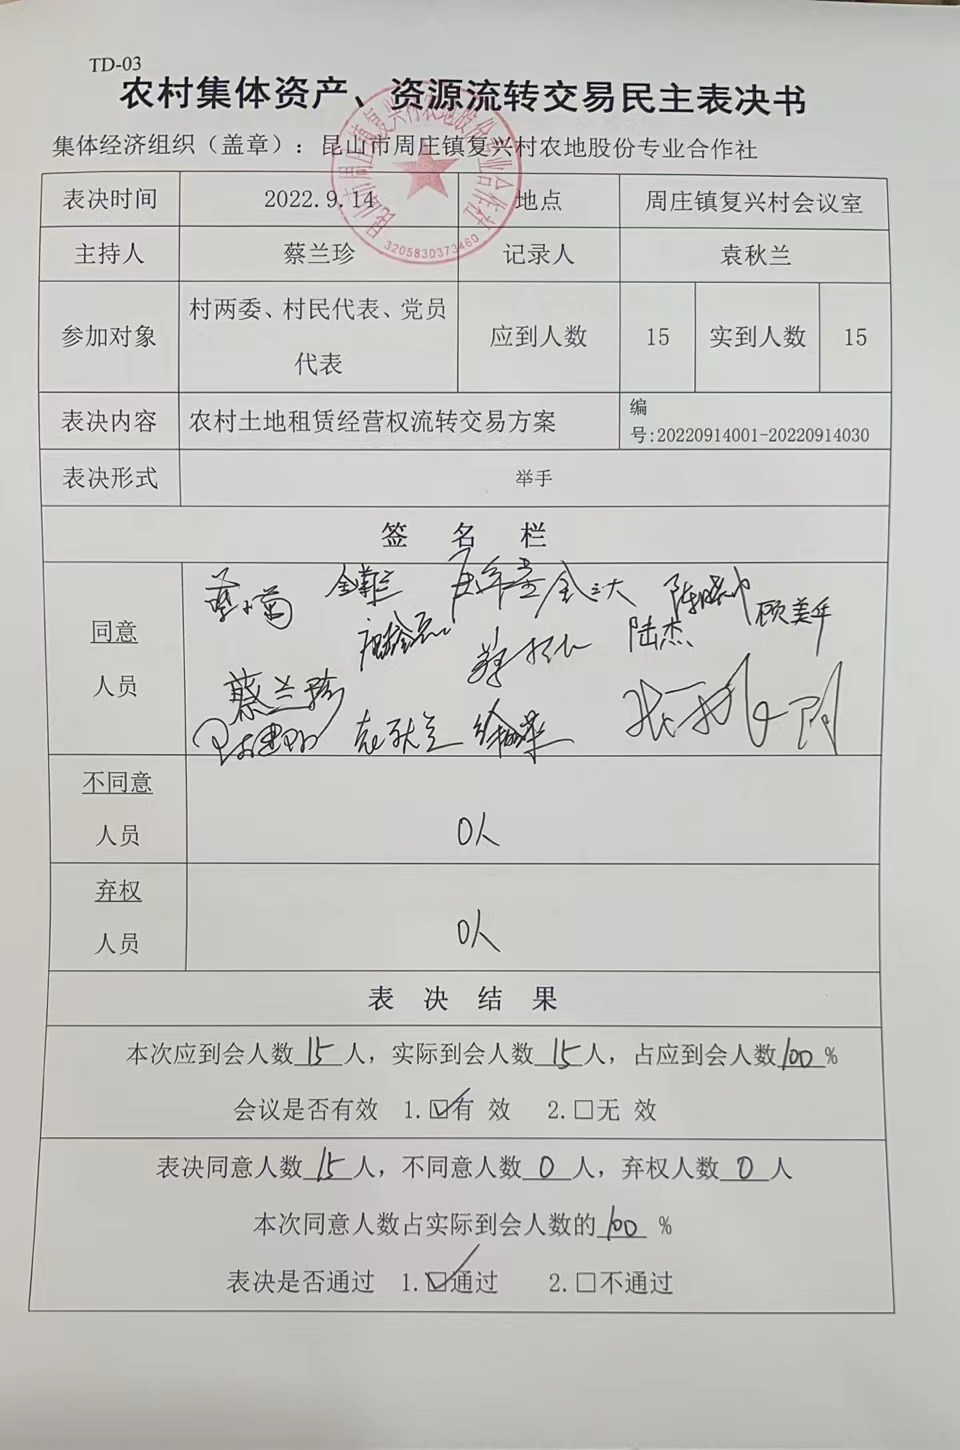 TD-03
农村集体资产、资源流转交易民主表决书
集体经济组织（盖章）：昆山市周庄镇复兴村农地股份专业合作社
昆山市周庄镇复兴村农地股份专业合作社
3205830373460
表决时间 2022.9.14 地点 周庄镇复兴村会议室
主持人 蔡兰珍 记录人 袁秋兰
参加对象 村两委、村民代表、党员代表 应到人数 15 实到人数 15
表决内容 农村土地租赁经营权流转交易方案 编
号:20220914001-20220914030
表决形式 举手
签 名 栏
同意
人员
陆杰 顾美华
蔡兰珍
袁秋兰
不同意
人员
0人
弃权
人员
0人
表 决 结 果
本次应到会人数15人，实际到会人数15人，占应到会人数100%
会议是否有效 1.☑有 效 2.□无 效
表决同意人数15人，不同意人数0人，弃权人数0人
本次同意人数占实际到会人数的100 %
表决是否通过 1.☑通过 2.□不通过